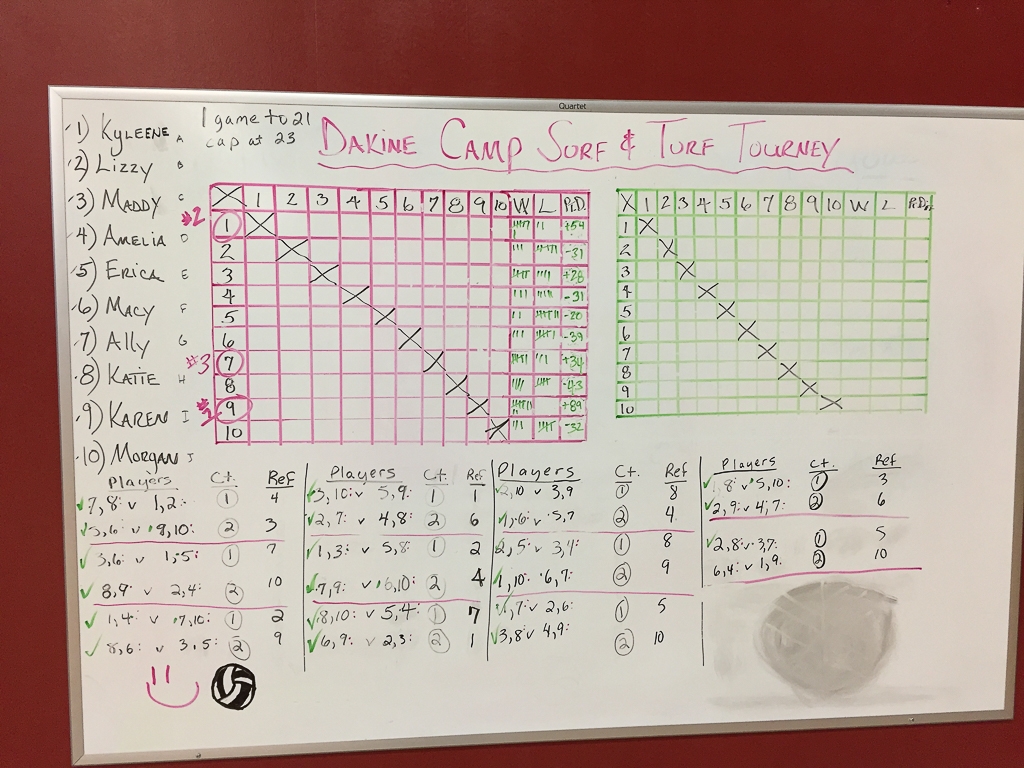 Quartet
1 game to 21
cap at 23
DAKINE CAMP SURF & TURF TOURNEY
1) KYLEENE A
2) Lizzy B
3) MADDY C
4) AMELIA D
5) ERICA E
6) MACY F
7) ALLY G
8) KATIE H
9) KAREN I
10) MORGAN J
X 1 2 3 4 5 6 7 8 9 10 W L P.D.
#2 1 +54
2 -31
3 +28
4 -31
5 -20
6 -39
#3 7 +34
8 -43
9 +89
10 -32
X 1 2 3 4 5 6 7 8 9 10 W L
1
2
3
4
5
6
7
8
9
10
Players Ct. Ref
7,8: v 1,2: 1 4
5,6: v 9,10: 2 3
3,6: v 1,5: 1 7
8,9: v 2,4: 2 10
1,4: v 7,10: 1 2
8,6: v 3,5: 2 9
Players Ct. Ref
3,10: v 5,9: 1 1
2,7: v 4,8: 2 6
1,3: v 5,8: 1 2
7,9: v 6,10: 2 4
8,10: v 5,4: 1 7
6,9: v 2,3: 2 1
Players Ct. Ref
2,10 v 3,9 1 8
1,6: v 5,7 2 4
2,5: v 3,4: 1 8
1,10: 6,7: 2 9
1,7: v 2,6: 1 5
3,8: v 4,9: 2 10
Players Ct. Ref
1,8: v 5,10: 1 3
2,9: v 4,7: 2 6
2,8: v 3,7: 1 5
6,4: v 1,9: 2 10